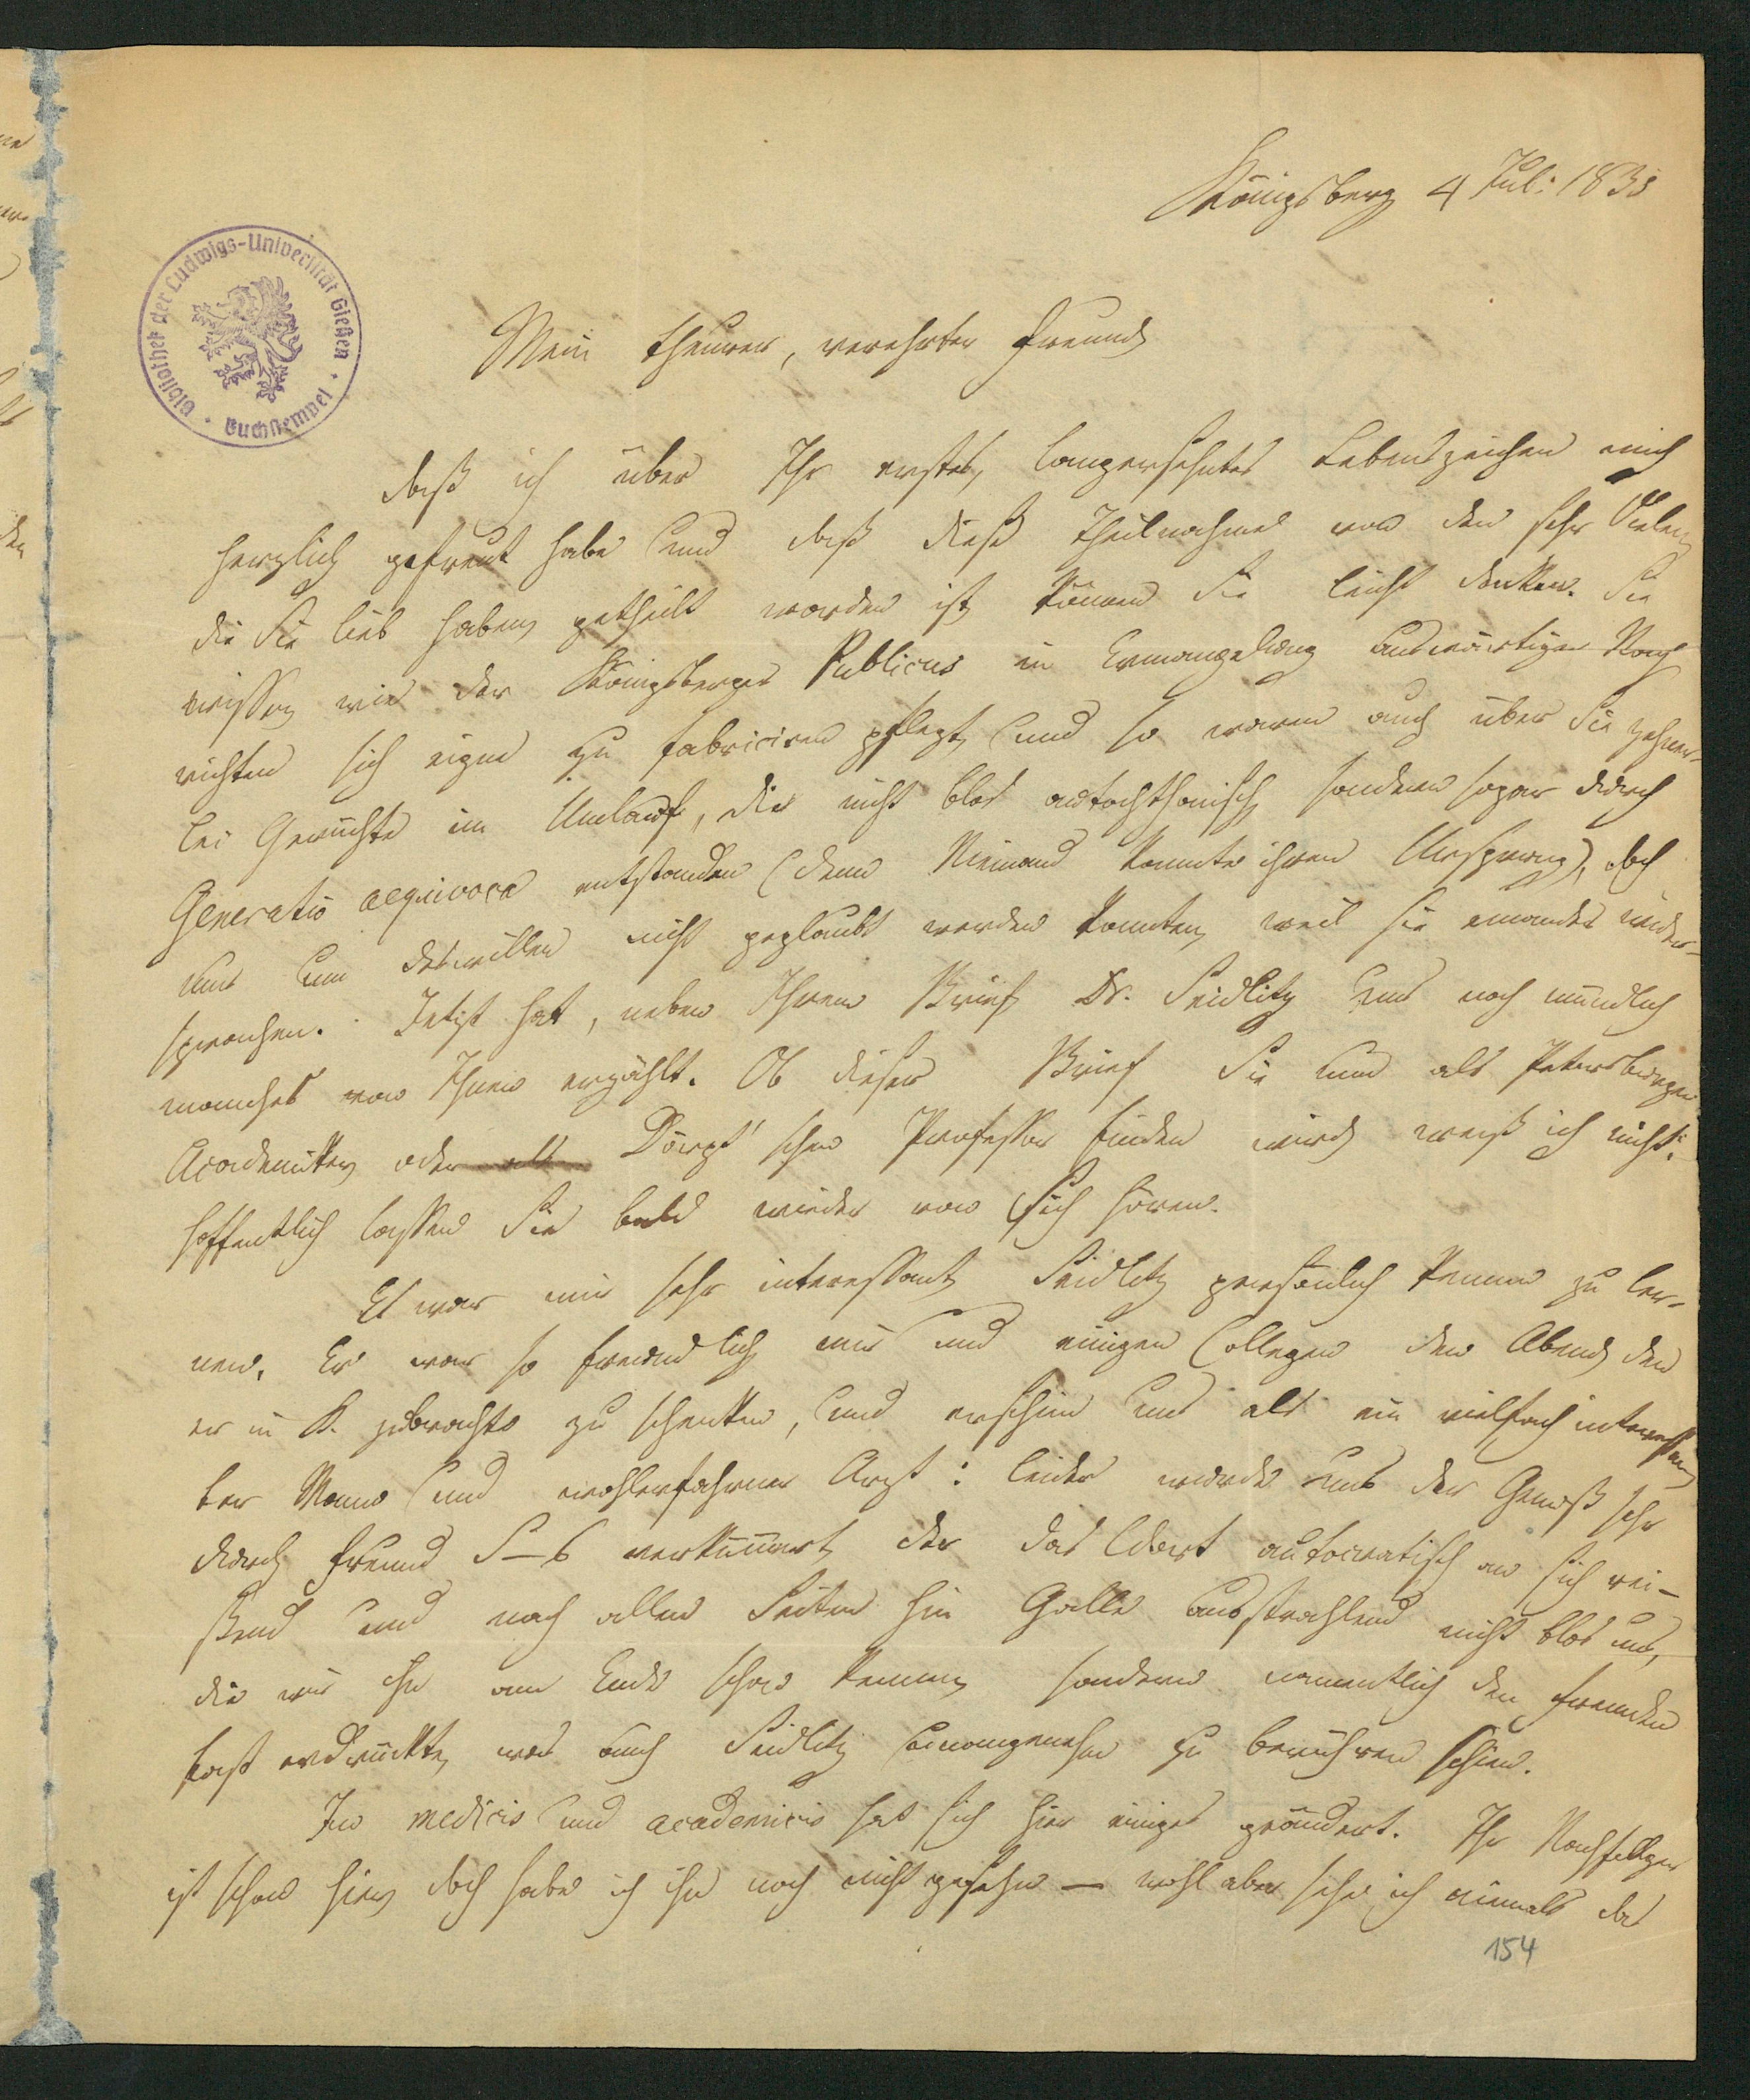 Königsberg 4 Juli 1835
Bibliothek der Ludwigs-Universität Gießen · Buchstempel ·
Mein theurer, verehrter Freund
Daß ich über Ihr erstes, langersehntes Lebenszeichen mich
herzlich gefreut habe und daß diese Theilnahme von den sehr Vielen,
die Sie lieb haben, getheilt worden ist, können Sie leicht denken. Sie
wissen, wie der Königsberger Publicus in Ermangelung auswärtiger Nach-
richten sich eigne zu fabriciren pflegt, und so waren auch über Sie zehner-
lei Gerüchte im Umlauf, die nicht blos autochthonisch, sondern sogar durch
Generatio aequivoca entstanden (denn Niemand kannte ihren Ursprung), doch
nur um deswillen nicht geglaubt werden konnten, weil sie einander wider-
sprachen. Jetzt hat, neben Ihrem Brief, Dr. Seidlitz uns noch mündlich
manches von Ihnen erzählt. Ob dieser Brief Sie nun als Petersburger
Academiker oder Dörpt'schen Professor finden wird, weiß ich nicht:
hoffentlich lassen Sie bald wieder von sich hören.
Es war mir sehr interessant, Seidlitz persönlich kennen zu ler-
nen. Er war so freundlich, mir und einigen Collegen den Abend, den
er in K. zubrachte zu schenken, und erschien uns als ein vielfach interessan-
ter Mann und wohlerfahrner Arzt: leider wurde uns der Genuß sehr
durch Freund S–s verkümmert, der das Wort autocratisch an sich rei-
ßend und nach allen Seiten hin Galle ausstrahlend nicht blos uns,
die wir ihn am Ende schon kennen, sondern namentlich den Fremden
fast erdrückte, was auch Seidlitz unangenehm zu berühren schien.
In medicis und academicis hat sich hier einiges geändert. Ihr Nachfolger
ist schon hier, doch habe ich ihn noch nicht gesehn — wohl aber sehe ich niemals das
154